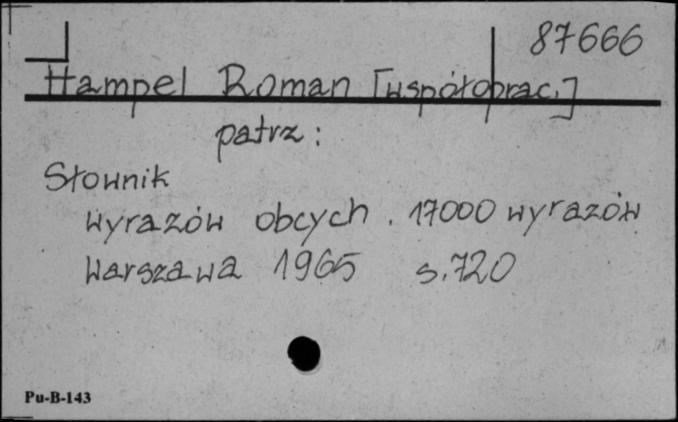 87666
Hampel Roman [współoprac.]
patrz:
Słownik
wyrazów obcych. 17000 wyrazów
Warszawa 1965 s.720
Pu-B-143